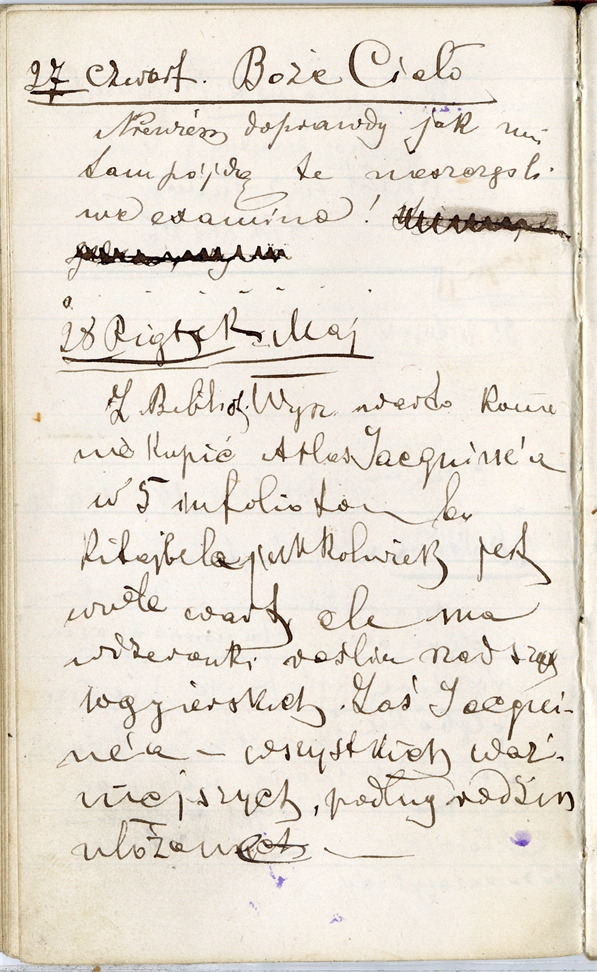 27 czwart. Boże Ciało
Niewiém doprawdy jak mi
tam pójdą te nieszczęśli-
we examina!
28 Piątek. Maj
Z Bibliot. Wyn. warto
nie kupić Atlas Jacquine'a
w 5 infolio tom
Kitajbela jakkolwiek jest
wiele wart, ale ma
wizerunki roślin rzadszy
węgierskich. Zaś Jacqui-
ne'a – wszystkich waż-
niejszych, podług rodzin
ułożan